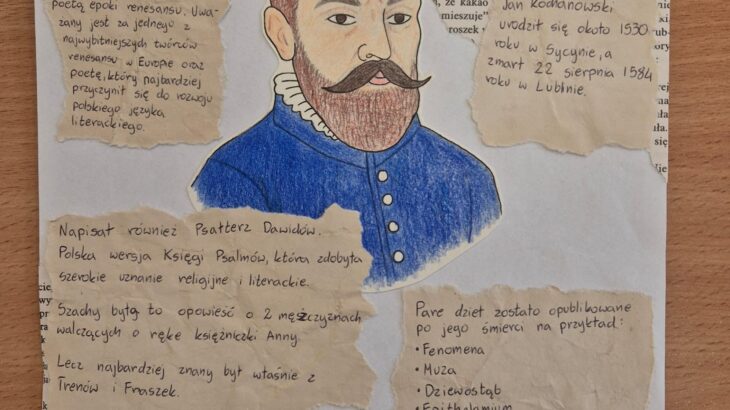 poetą epoki renesansu. Uwa-
żany jest za jednego z
najwybitniejszych twórców
renesansu w Europie oraz
poetę, który najbardziej
przyczynił się do rozwoju
polskiego języka
literackiego.
że kakao
mieszuje"
roszek w
Jan Kochanowski
urodził się około 1530
roku w Sycynie, a
zmarł 22 sierpnia 1584
roku w Lublinie.
Napisał również Psałterz Dawidów.
Polska wersja Księgi Psalmów, która zdobyła
szerokie uznanie religijne i literackie.
Szachy byłą to opowieść o 2 mężczyznach
walczących o rękę księżniczki Anny
Lecz najbardziej znany był właśnie z
Trenów i Fraszek.
Parę dzieł zostało opublikowane
po jego śmierci na przykład:
• Fenomena
• Muza
• Dziewosłąb
• Epithalamium